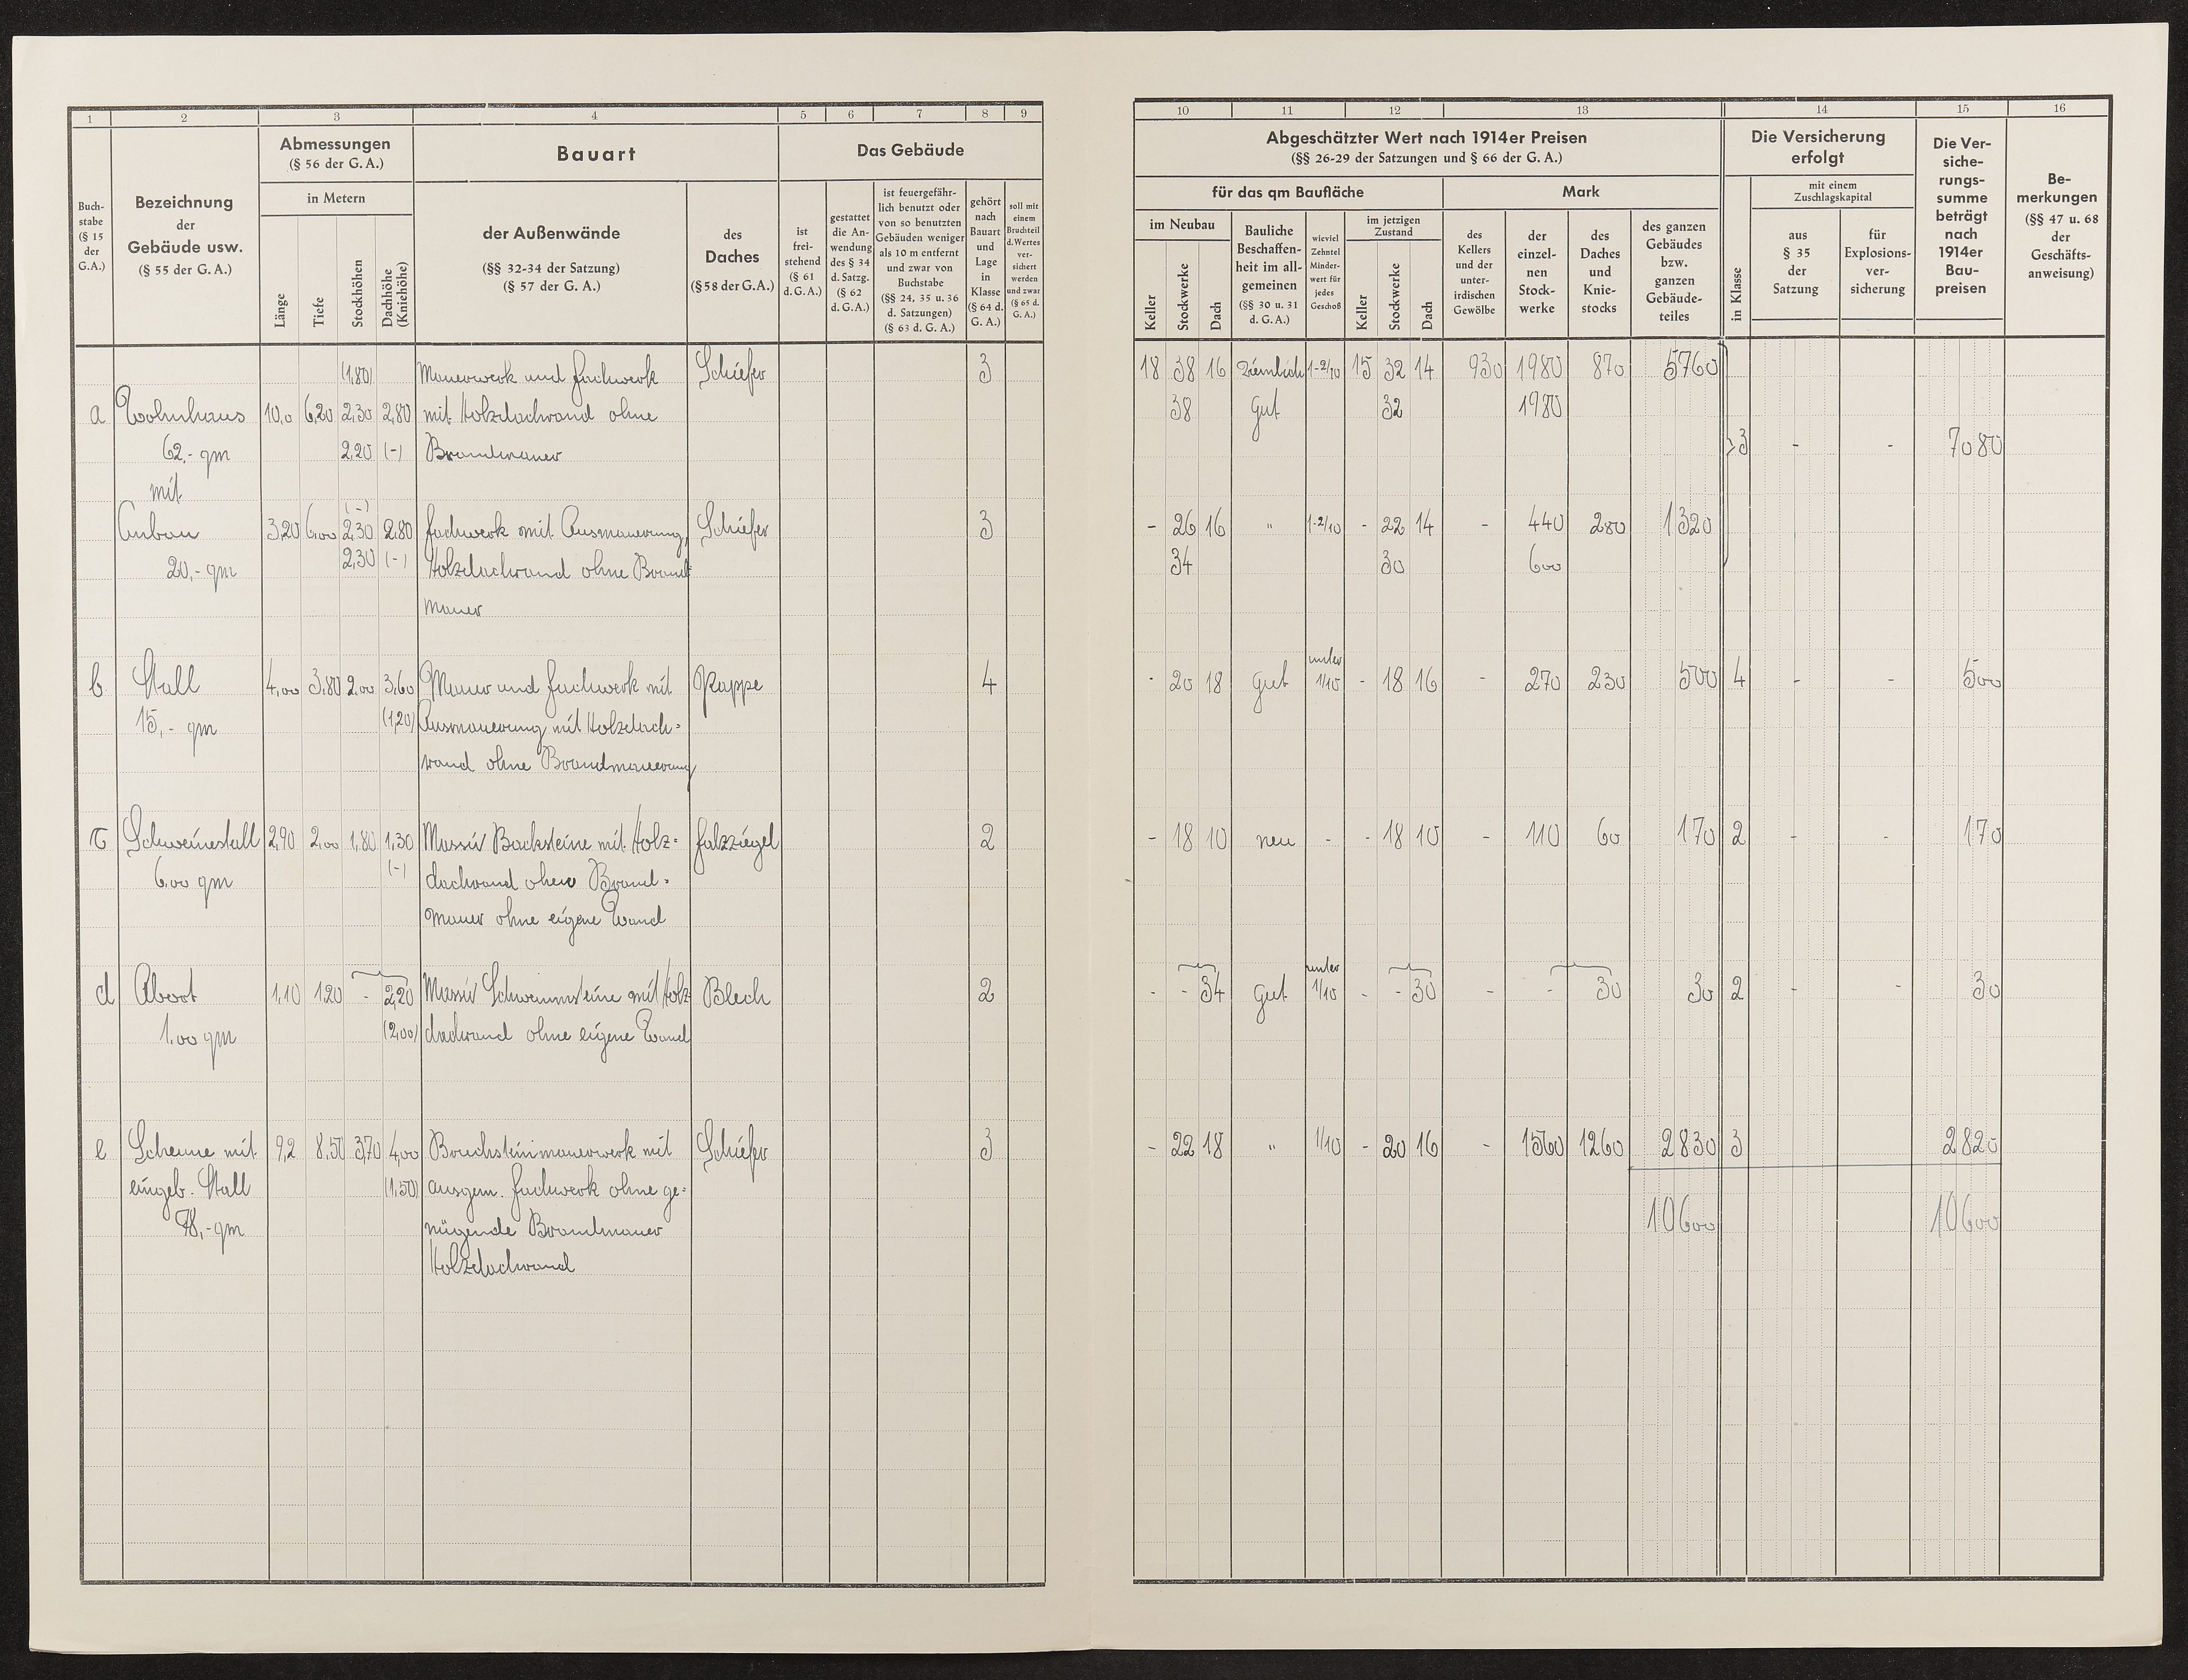 1 2 3 4 5 6 7 8 9
Buch-
stabe
(§ 15
der
G.A.)
Bezeichnung
der
Gebäude usw.
(§ 55 der G. A.)
Abmessungen
(§ 56 der G. A.)
in Metern
Länge
Tiefe
Stockhöhen
Dachhöhe
(Kniehöhe)
Bauart
der Außenwände
(§§ 32-34 der Satzung)
(§ 57 der G. A.)
des
Daches
(§ 58 der G. A.)
Das Gebäude
ist
frei-
stehend
(§ 61
d. G. A.)
gestattet
die An-
wendung
des § 34
d. Satzg.
(§ 62
d. G. A.)
ist feuergefähr-
lich benutzt oder
von so benutzten
Gebäuden weniger
als 10 m entfernt
und zwar von
Buchstabe
(§§ 24, 35 u. 36
d. Satzungen)
(§ 63 d. G. A.)
gehört
nach
Bauart
und
Lage
in
Klasse
(§ 64 d.
G. A.)
soll mit
einem
Bruchteil
d. Wertes
ver-
sichert
werden
und zwar
(§ 65 d.
G. A.)
(1,80) Mauerwerk und Fachwerk Schiefer 3
a Wohnhaus 10,0 6,20 2,30 2,80 mit Holzdachwand ohne
62,- qm 2,20 (-) Brandmauer
mit
(-)
Anbau 3,20 6,00 2,30 2,80 Fachwerk mit Ausmauerung, Schiefer 3
20,- qm 2,30 (-) Holzdachwand ohne Brand
mauer
b Stall 4,00 3,80 2,00 3,60 Mauer und Fachwerk mit Pappe 4
15,- qm (1,20) Ausmauerung mit Holzdach-
wand ohne Brandmauerung
c Schweinestall 2,90 2,00 1,80 1,30 Massiv Backsteine mit Holz- Falzziegel 2
6,00 qm (-) dachwand ohne Brand-
mauer ohne eigene Wand
d Abort 1,10 1,20 - 2,20 Massiv Schwemmsteine mit Holz Blech 2
1,00 qm (2,00) dachwand ohne eigene Wand
e Scheune mit 9,2 8,50 3,70 4,00 Bruchsteinmauerwerk mit Schiefer 3
eingeb. Stall (1,50) ausgem. Fachwerk ohne ge-
78,- qm nügende Brandmauer
Holzdachwand
10 11 12 13 14 15 16
Abgeschätzter Wert nach 1914er Preisen
(§§ 26-29 der Satzungen und § 66 der G. A.)
für das qm Baufläche
Mark
im Neubau
Keller
Stockwerke
Dach
Bauliche
Beschaffen-
heit im all-
gemeinen
(§§ 30 u. 31
d. G. A.)
wieviel
Zehntel
Minder-
wert für
jedes
Geschoß
im jetzigen
Zustand
Keller
Stockwerke
Dach
des
Kellers
und der
unter-
irdischen
Gewölbe
der
einzel-
nen
Stock-
werke
des
Daches
und
Knie-
stocks
des ganzen
Gebäudes
bzw.
ganzen
Gebäude-
teiles
Die Versicherung
erfolgt
in Klasse
mit einem
Zuschlagskapital
aus
§ 35
der
Satzung
für
Explosions-
ver-
sicherung
Die Ver-
siche-
rungs-
summe
beträgt
nach
1914er
Bau-
preisen
Be-
merkungen
(§§ 47 u. 68
der
Geschäfts-
anweisung)
18 38 16 Ziemlich 1-2/10 15 32 14 930 1980 870 5760
38 Gut 32 1980
3 - - 7080
- 26 16 " 1-2/10 - 22 14 - 440 280 1320
34 30 600
unter
- 20 18 Gut 1/10 - 18 16 - 270 230 500 4 - - 500
- 18 10 neu - - 18 10 - 110 60 170 2 - - 170
unter
- - 34 Gut 1/10 - - 30 - - 30 30 2 - - 30
- 22 18 " 1/10 - 20 16 - 1560 1260 2830 3 2820
10600 10600